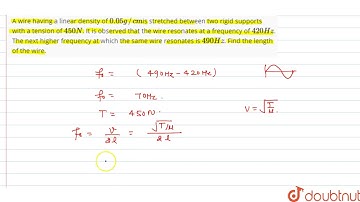 A wire having a linear density of 0.05g/cmis stretched between two rigid supports
with a tension of 450N. It is observed that the wire resonates at a frequency of 420Hz
The next higher frequency at which the same wire resonates is 490Hz. Find the length
of the wire.
f₀ = (490Hz - 420Hz)
f₀ = 70Hz.
T = 450N.
V = √T/μ.
f₀ = v/2l = √T/μ / 2l
doubtnut